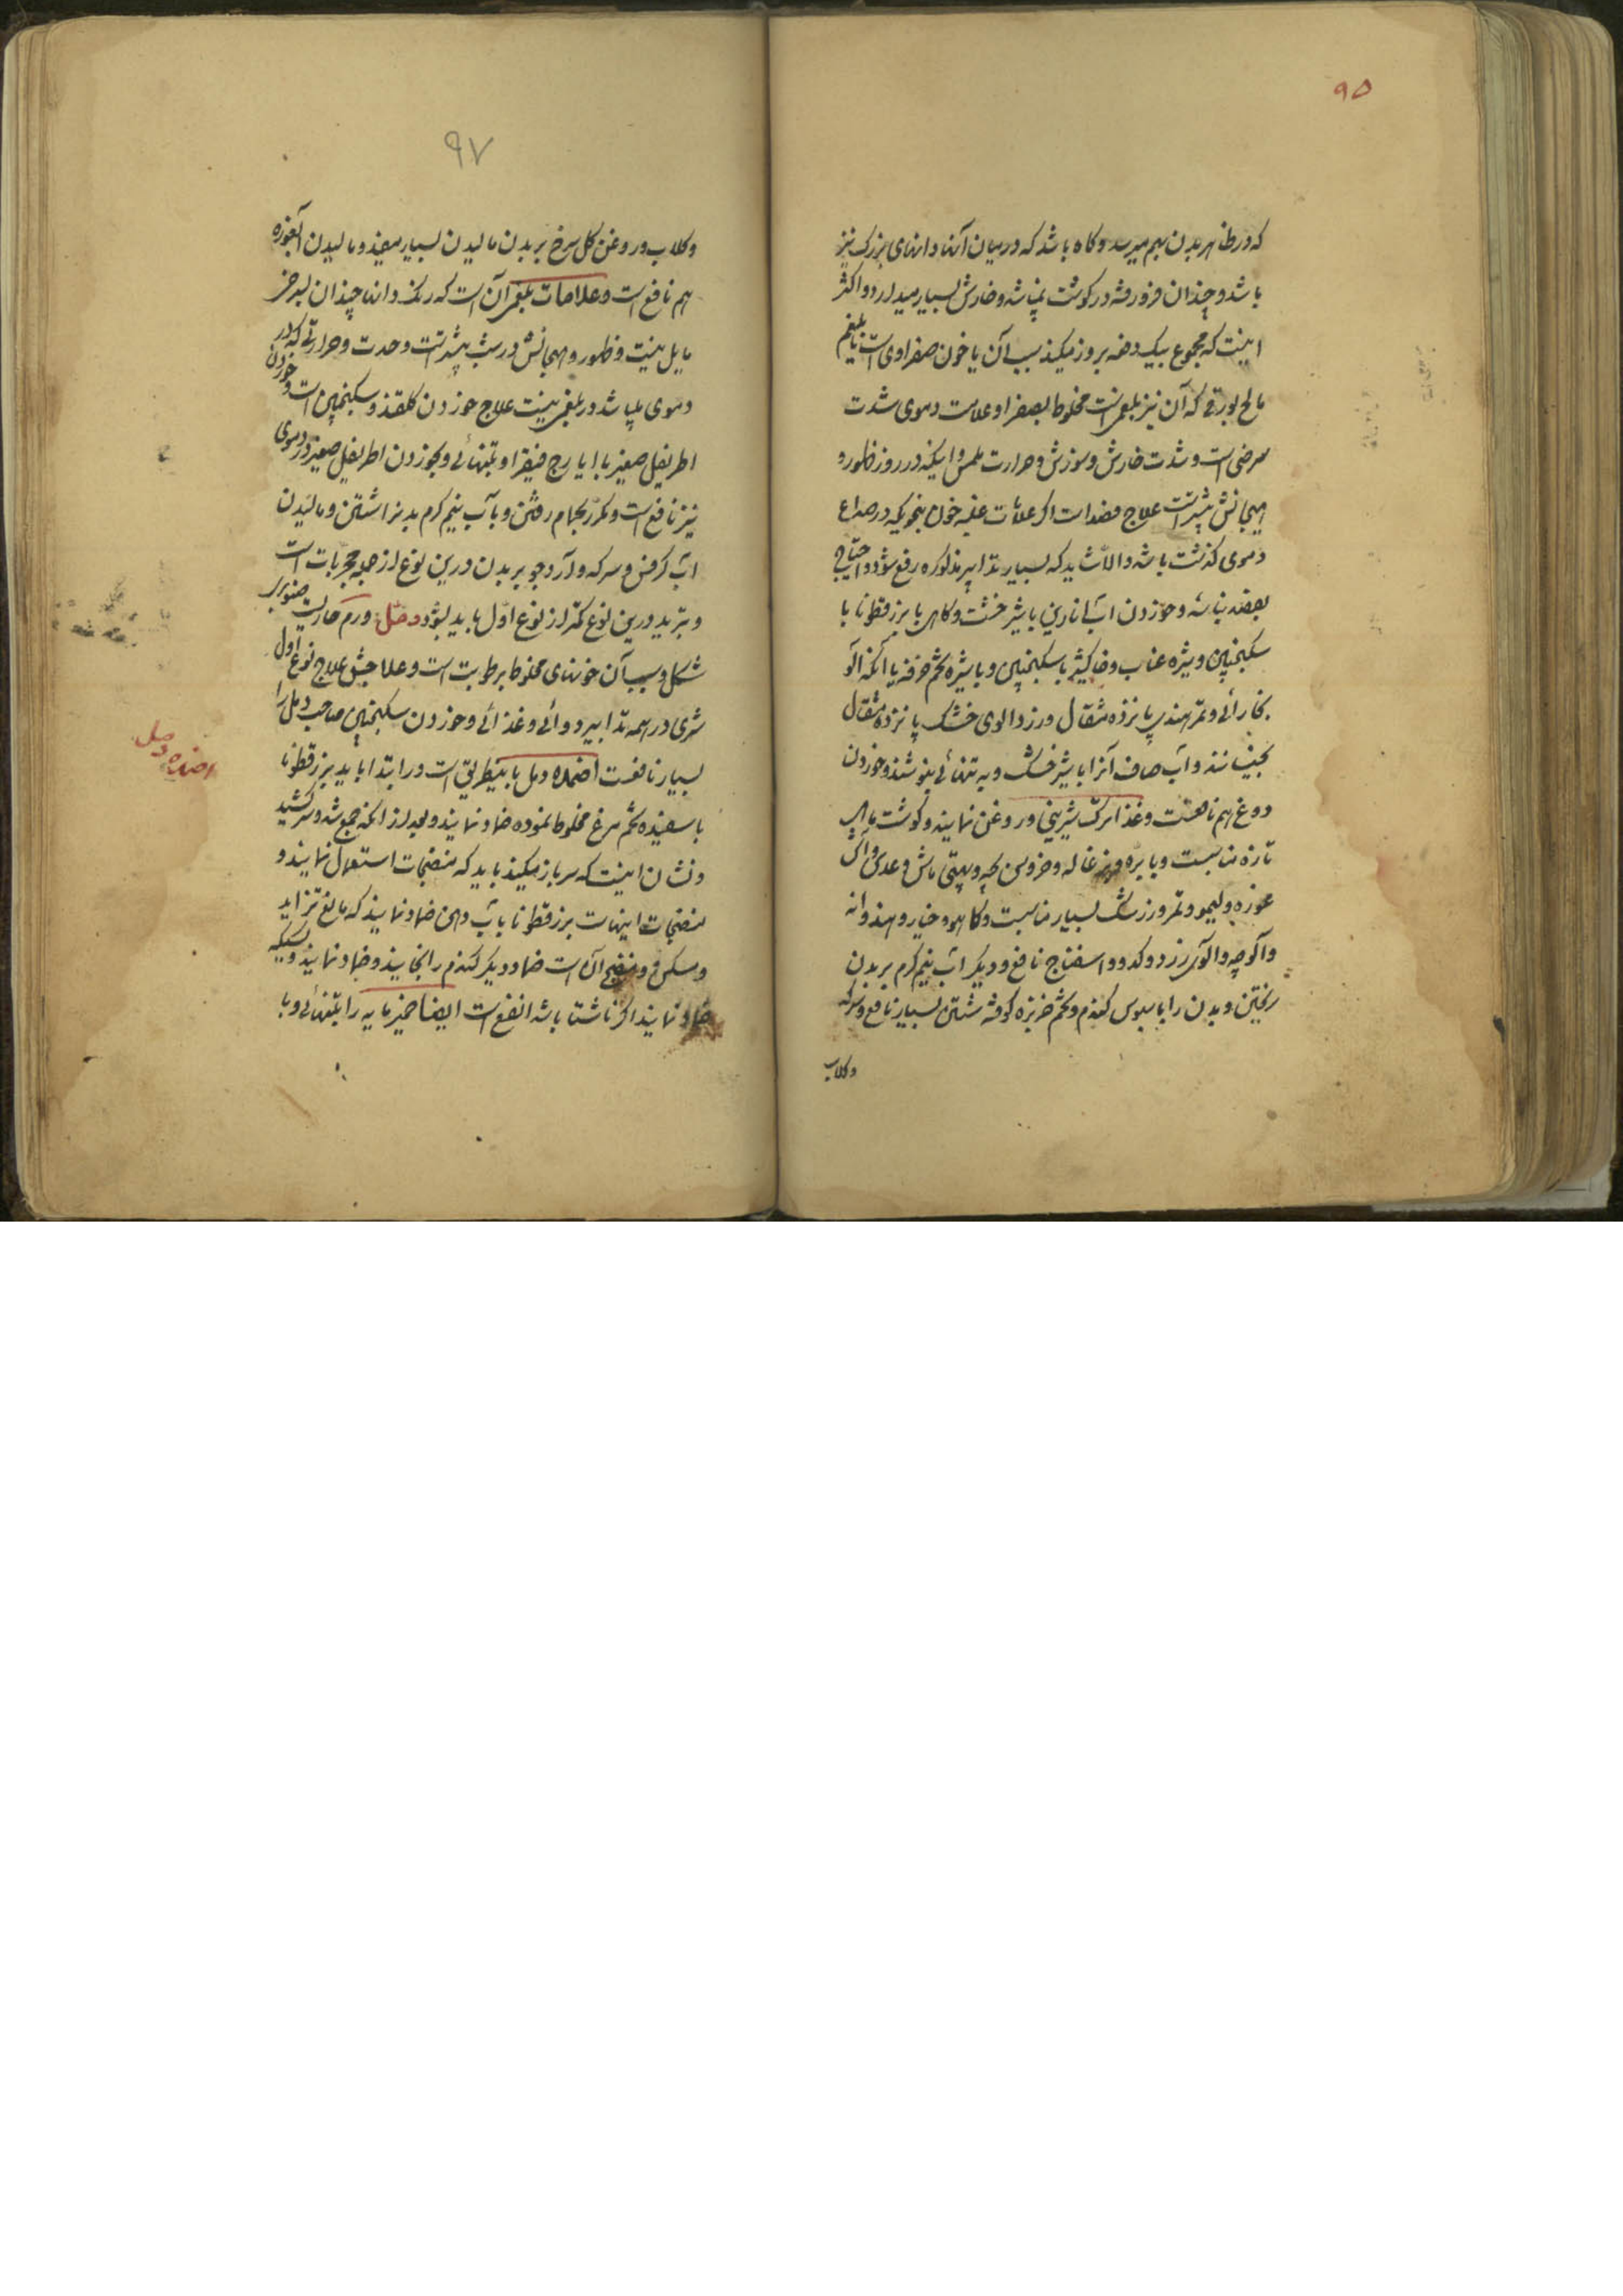 ۹۵
که در ظاهر بدن بهم میرسد و کاه باشد که در میان آنها دانهای بزرک نیز
باشد و چندان فرو رفته در کوشت نباشد و خارش بسیار میدارد و اکثر
اینست که مجموع بیک دفعه بروز میکند سبب آن یا خون صفراوی است یا بلغم
مالح بورقی که آن نیز بلغمیست مخلوط بصفرا و علامت دموی شدت
سرخی است و شدت خارش و سوزش و حرارت ملمس و اینکه در روز ظهور و
هیجانش بیشتر است علاج فصد است اکر علامات غلبه خون بنحویکه در صداع
دموی کذشت باشد والا شاید که بسیار بتدابیر مذکوره رفع شود و احتیاج
بفصد نباشد و خوردن آب انارین با شیر خشت و کاهی با بزرقطونا با
سکنجبین و شیره عناب و خاکشیر با سکنجبین و با شیره تخم خرفه یا آنکه آلو
بخارائی و تمر هندی پانزده مثقال و زردالوی خشک پانزده مثقال
بخیسانند و آب صاف آنرا با شیر خشک و به تنهائی بنوشند و خوردن
دوغ هم نافعست و غذا ترک شیرینی و روغن نمایند و کوشت ماهی
تازه مناسبست و با بره و بزغاله و خروس بچه و بهتی ماش و عدس و آش
غوره و لیمو و تمر و زرشک بسیار مناسبست و کاهو و خیار و هندوانه
و آلوچه و آلوی زرد و کدو و اسفناج نافع و دیکر آب نیم کرم بر بدن
ریختن و بدن را با سبوس کندم و تخم خربزه کوفته شستن بسیار نافع و سرکه
و کلاب
۹۷
و کلاب و روغن کل سرخ بر بدن مالیدن بسیار مفید و مالیدن آبغوره
هم نافع است و علامات بلغمی آن است که رنک دانها چندان بسرخی
مایل نیست و ظهور و هیجانش در شب بیشتر است و حدت و حرارتی که در
دموی میباشد در بلغمی نیست علاج خوردن کلقند و سکنجبین است و خوردن
اطریفل صغیر با ایارج فیقرا و بتنهائی و بخوردن اطریفل صغیر در دموی
نیز نافع است و مکرر بحمام رفتن و بآب نیم کرم بدن را شستن و مالیدن
آب کرفس و سرکه و آرد جو بر بدن درین نوع از جمله مجربات است
و تبرید درین نوع کمتر از نوع اول باید بشود دمل ورم حاریست صنوبری
شکل و سبب آن خونهای مخلوط برطوبت است و علاجش علاج نوع اول
شری در همه تدابیر دوائی و غذائی و خوردن سکنجبین صاحب دمل را
بسیار نافعست اضمده دمل باینطریق است در ابتدا باید بزرقطونا
با سفیده تخم مرغ مخلوط نموده ضماد نمایند و بعد از آنکه جمع شد و سر کشید
و نشان اینست که سر باز میکند باید که منضجات استعمال نمایند و
منضجات اینهاست بزرقطونا بآب دهن ضماد نمایند که مانع تزاید
و مسکن و منضج آن است ضماد دیکر کندم را بخایند و ضماد نمایند و کسیکه
ضماد نماید اکر ناشتا باشد انفع است ایضا خمیر مایه را بتنهائی و با
اضمده دمل